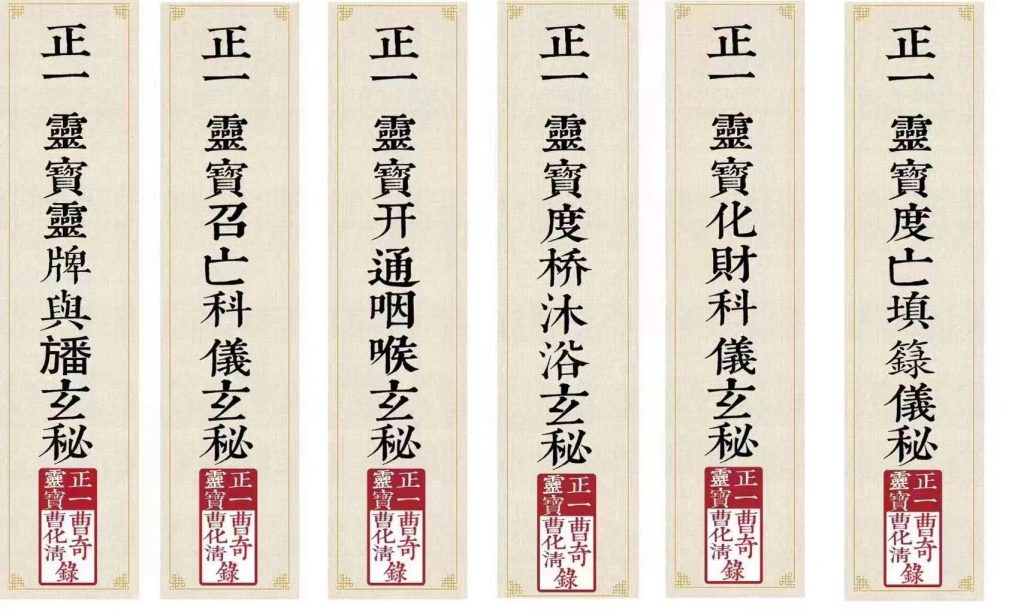 正一 靈寶靈牌與旛玄秘
正一
靈寶
曹奇錄
曹化清
正一 靈寶召亡科儀玄秘
正一
靈寶
曹奇錄
曹化清
正一 靈寶开通咽喉玄秘
正一
靈寶
曹奇錄
曹化清
正一 靈寶度桥沐浴玄秘
正一
靈寶
曹奇錄
曹化清
正一 靈寶化財科儀玄秘
正一
靈寶
曹奇錄
曹化清
正一 靈寶度亡填籙儀秘
正一
靈寶
曹奇錄
曹化清